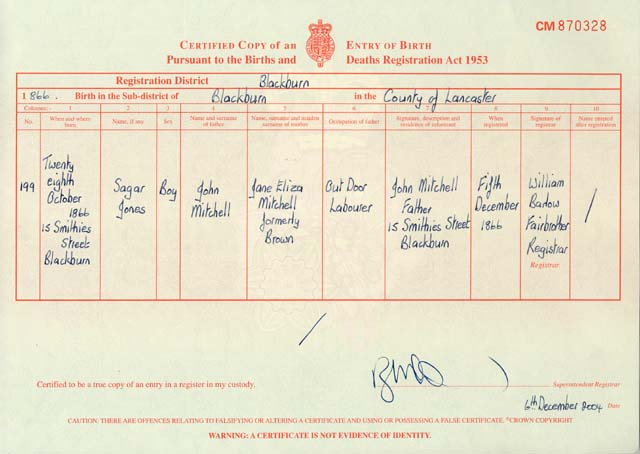 CM 870328
CERTIFIED COPY OF AN ENTRY OF BIRTH
Pursuant to the Births and Deaths Registration Act 1953
Registration District Blackburn
1866. Birth in the Sub-district of Blackburn in the County of Lancaster
Columns:- 1 2 3 4 5 6 7 8 9 10
No.
When and where
born
Name, if any
Sex
Name and surname
of father
Name, surname and maiden
surname of mother
Occupation of father
Signature, description and
residence of informant
When
registered
Signature of
registrar
Name entered
after registration
199
Twenty
eighth
October
1866
15 Smithies
Street
Blackburn
Sagar
Jones
Boy
John
Mitchell
Jane Eliza
Mitchell
formerly
Brown
Out Door
Labourer
John Mitchell
Father
15 Smithies Street
Blackburn
Fifth
December
1866
William
Barlow
Fairbrother
Registrar
Registrar
/
/
Certified to be a true copy of an entry in a register in my custody.
Superintendent Registrar
6th December 2004 Date
CAUTION: THERE ARE OFFENCES RELATING TO FALSIFYING OR ALTERING A CERTIFICATE AND USING OR POSSESSING A FALSE CERTIFICATE. ©CROWN COPYRIGHT
WARNING: A CERTIFICATE IS NOT EVIDENCE OF IDENTITY.